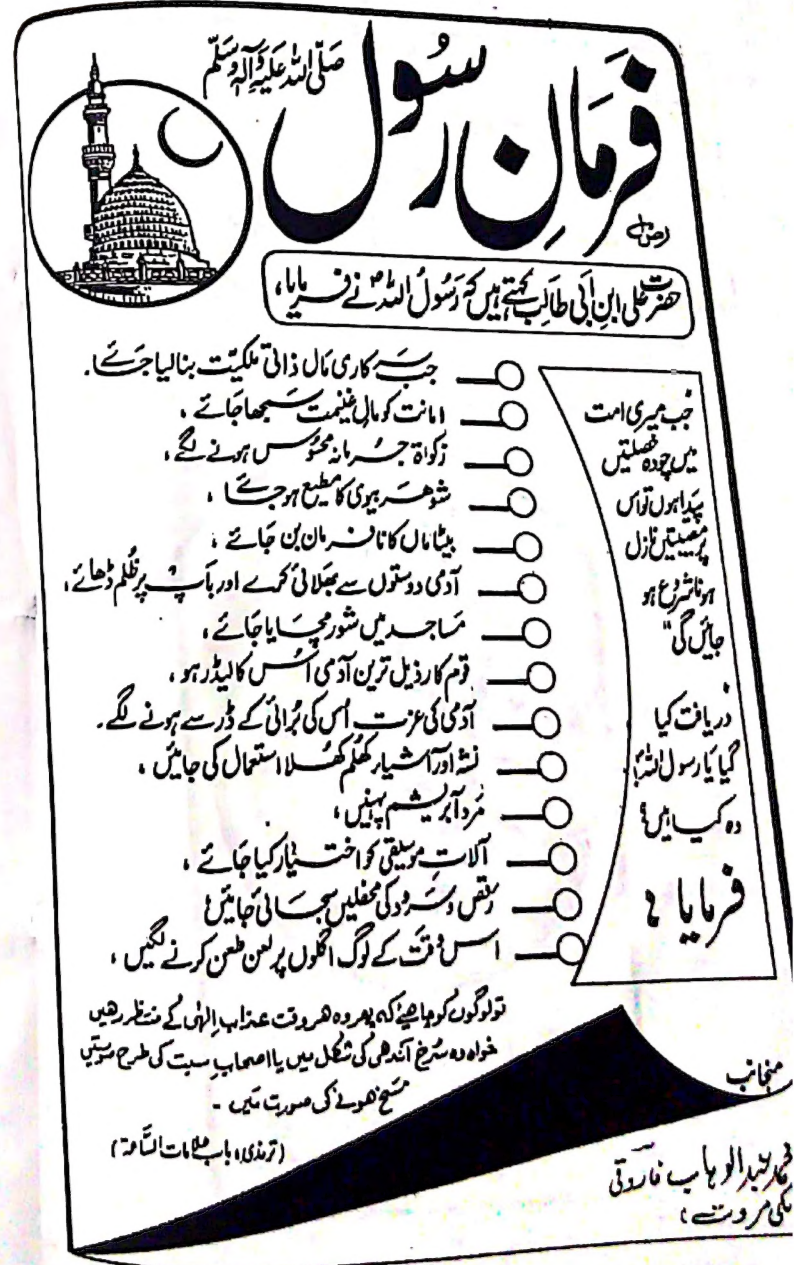 فرمانِ رسول
صلی اللہ علیہ وآلہ وسلم
حضرت علی ابنِ ابی طالب کہتے ہیں کہ رسولُ اللہؐ نے فرمایا،
جب میری امت
میں چودہ خصلتیں
پیدا ہوں تو اس
پر مصیبتیں نازل
ہونا شروع ہو
جائیں گی"
دریافت کیا
گیا یا رسول اللہؐ!
وہ کیا ہیں؟
فرمایا؛
جب سرکاری مال ذاتی ملکیت بنا لیا جائے۔
امانت کو مالِ غنیمت سمجھا جائے،
زکواۃ جرمانہ محسوس ہونے لگے،
شوہر بیوی کا مطیع ہو جائے،
بیٹا ماں کا نافرمان بن جائے،
آدمی دوستوں سے بھلائی کرے اور باپ پر ظُلم ڈھائے،
مساجد میں شور مچایا جائے،
قوم کا رذیل ترین آدمی اُس کا لیڈر ہو،
آدمی کی عزت اس کی بُرائی کے ڈر سے ہونے لگے۔
نشہ آور اشیاء کھلم کھلا استعمال کی جائیں،
مرد آبریشم پہنیں،
آلاتِ موسیقی کو اختیار کیا جائے،
رقص و سرود کی محفلیں سجائی جائیں؛
اس وقت کے لوگ اگلوں پر لعن طعن کرنے لگیں،
تو لوگوں کو چاہئے کہ پھر وہ ہر وقت عذابِ الٰہی کے منتظر رہیں
خواہ وہ سُرخ آندھی کی شکل میں یا اصحابِ سبت کی طرح صورتیں
مسخ ہونے کی صورت میں ۔
(ترمذی، باب علامات الساعۃ)
منجانب
محمد عبدالوہاب فاروقی
لکی مروت؛